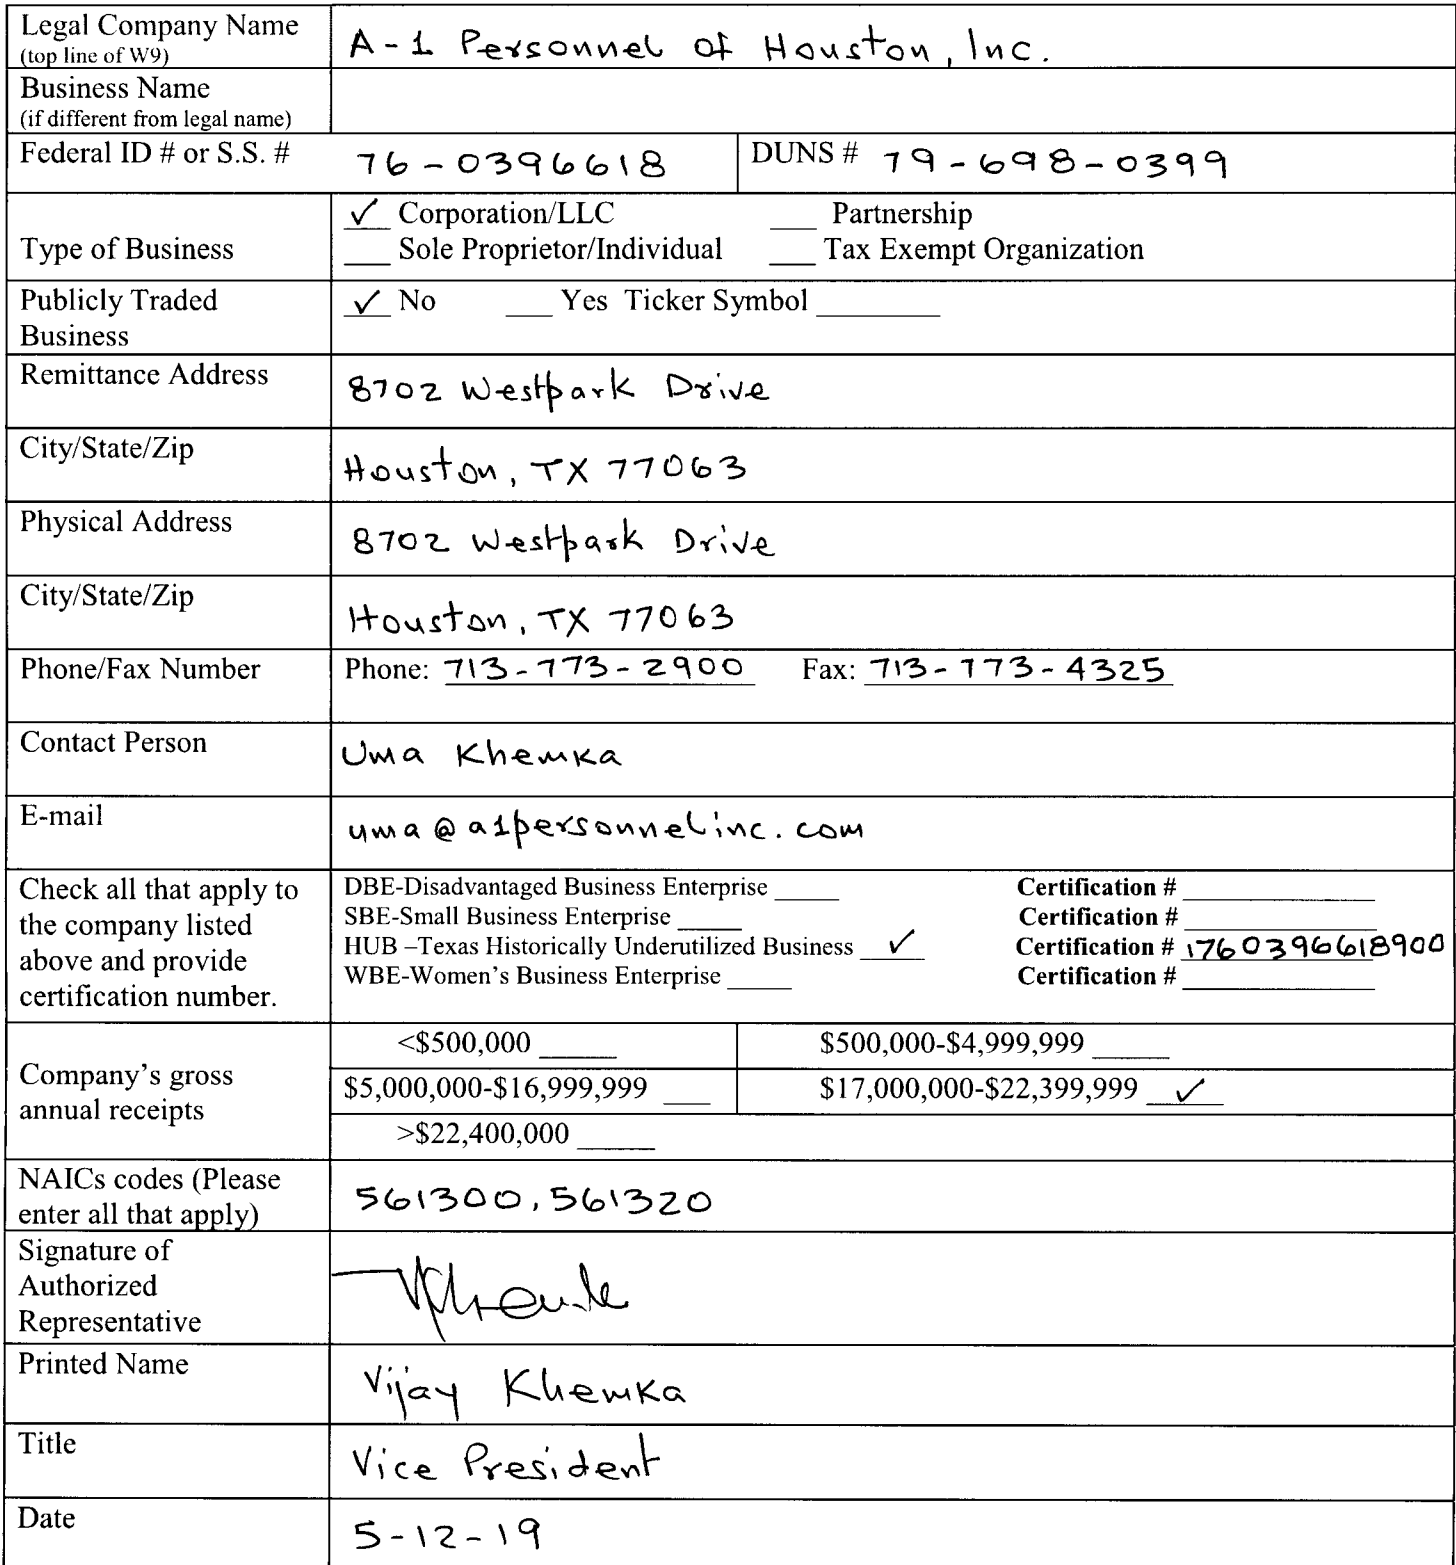 Legal Company Name
(top line of W9)
A-1 Personnel of Houston, Inc.
Business Name
(if different from legal name)
Federal ID # or S.S. #
76-0396618
DUNS # 79-698-0399
Type of Business
✓ Corporation/LLC ___ Partnership
___ Sole Proprietor/Individual ___ Tax Exempt Organization
Publicly Traded
Business
✓ No ___ Yes Ticker Symbol ________
Remittance Address
8702 Westpark Drive
City/State/Zip
Houston, TX 77063
Physical Address
8702 Westpark Drive
City/State/Zip
Houston, TX 77063
Phone/Fax Number
Phone: 713-773-2900 Fax: 713-773-4325
Contact Person
Uma Khemka
E-mail
uma@a1personnelinc.com
Check all that apply to
the company listed
above and provide
certification number.
DBE-Disadvantaged Business Enterprise _____ Certification # ________
SBE-Small Business Enterprise _____ Certification # ________
HUB –Texas Historically Underutilized Business ✓ Certification # 1760396618900
WBE-Women's Business Enterprise _____ Certification # ________
Company's gross
annual receipts
<$500,000 _____ $500,000-$4,999,999 _____
$5,000,000-$16,999,999 ___ $17,000,000-$22,399,999 ✓
>$22,400,000 _____
NAICs codes (Please
enter all that apply)
561300, 561320
Signature of
Authorized
Representative
Printed Name
Vijay Khemka
Title
Vice President
Date
5-12-19